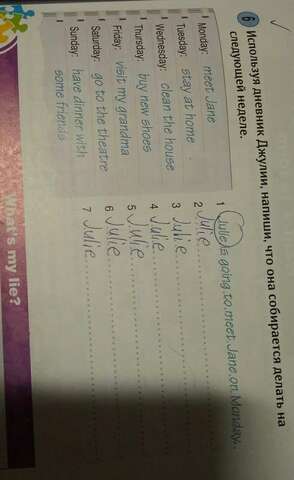 6 Используя дневник Джулии, напиши, что она собирается делать на
следующей неделе.
Monday: meet Jane
Tuesday: stay at home
Wednesday: clean the house
Thursday: buy new shoes
Friday: visit my grandma
Saturday: go to the theatre
Sunday: have dinner with
some friends
1 Julie is going to meet Jane on Monday.
2 Julie
3 Julie
4 Julie
5 Julie
6 Julie
7 Julie
What's my lie?